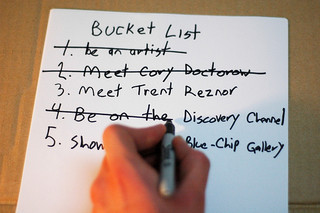 Bucket List
1. be an artist
2. Meet Cory Doctorow
3. Meet Trent Reznor
4. Be on the Discovery Channel
5. Show Blue-Chip Gallery